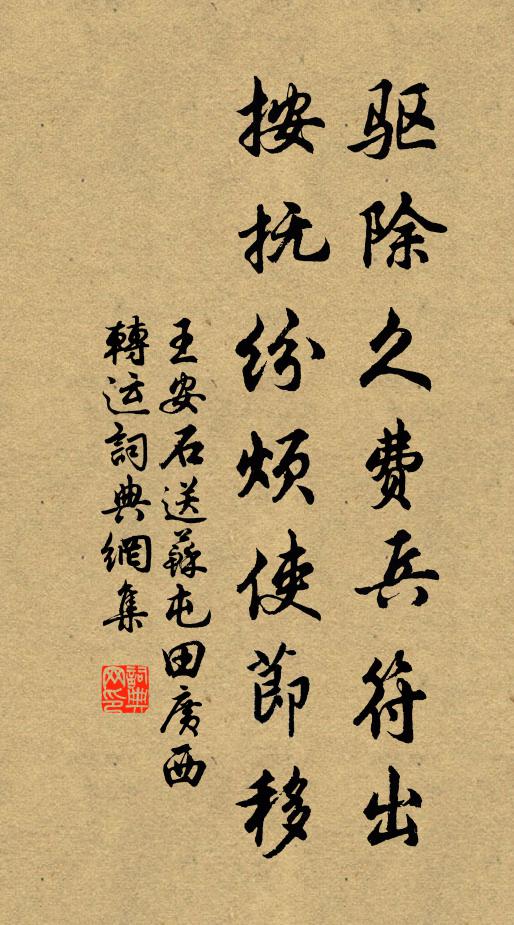 驱除久费兵符出
按抚纷烦使节移
王安石送蘇屯田廣西
轉运詞典網集
詞典网印